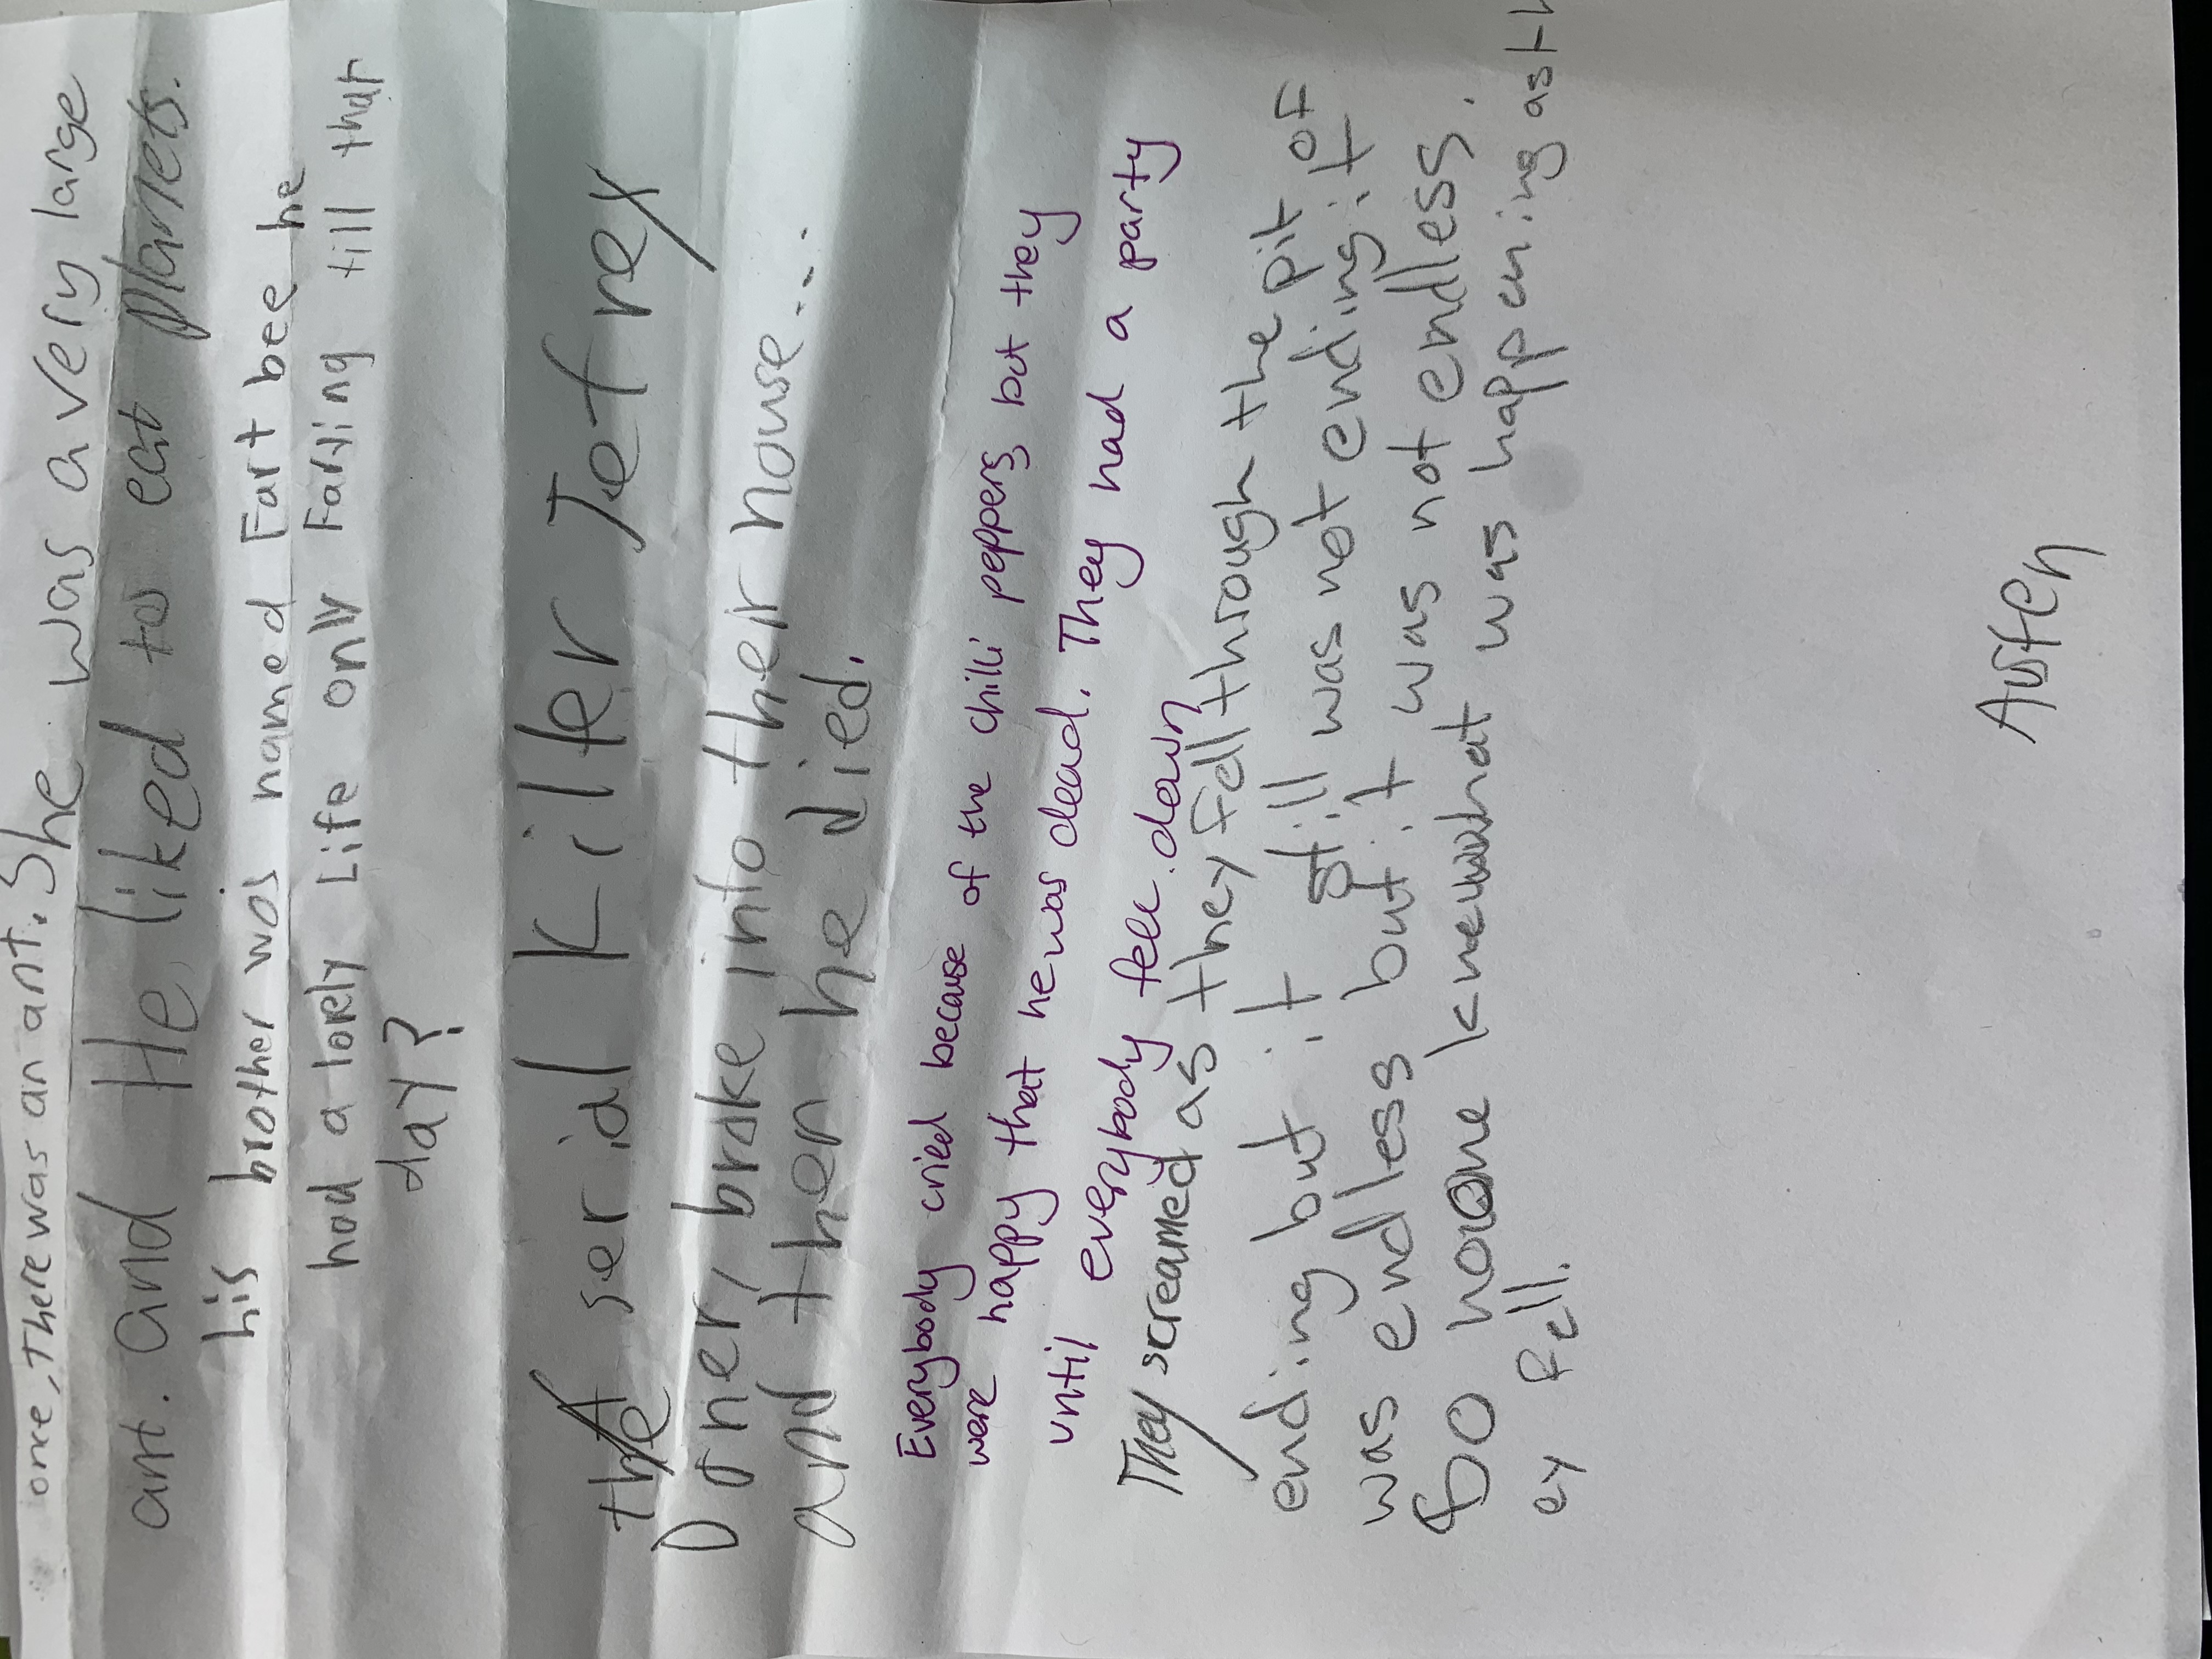 once, There was an ant. She was a very large
ant. and He liked to eat planets.
his brother was named Fart bee he
had a lovely Life only Farting till that
day?
the serial killer Jefrey
Doner, broke into their house...
and then he died.
Everybody cried because of the chilli peppers, but they
were happy that he was dead. They had a party
until everybody fell down
They screamed as they fell through the pit of
ending but it still was not ending it
was endless but it was not endless.
So no one knew what was happening as th
ey fell.
Austen